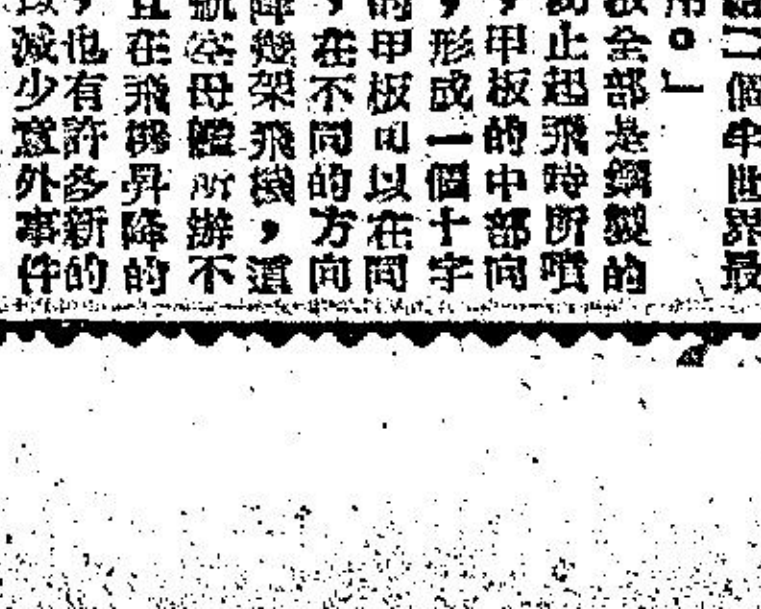 個半世界最
用。」
全部是鋼製的
止起飛時所噴
甲板的中部向
，形成一個十字
的甲板可以在同
，在不同的方向
降幾架飛機，這
航空母艦所辦不
且在飛機昇降的
，也有許多新的
減少意外事件